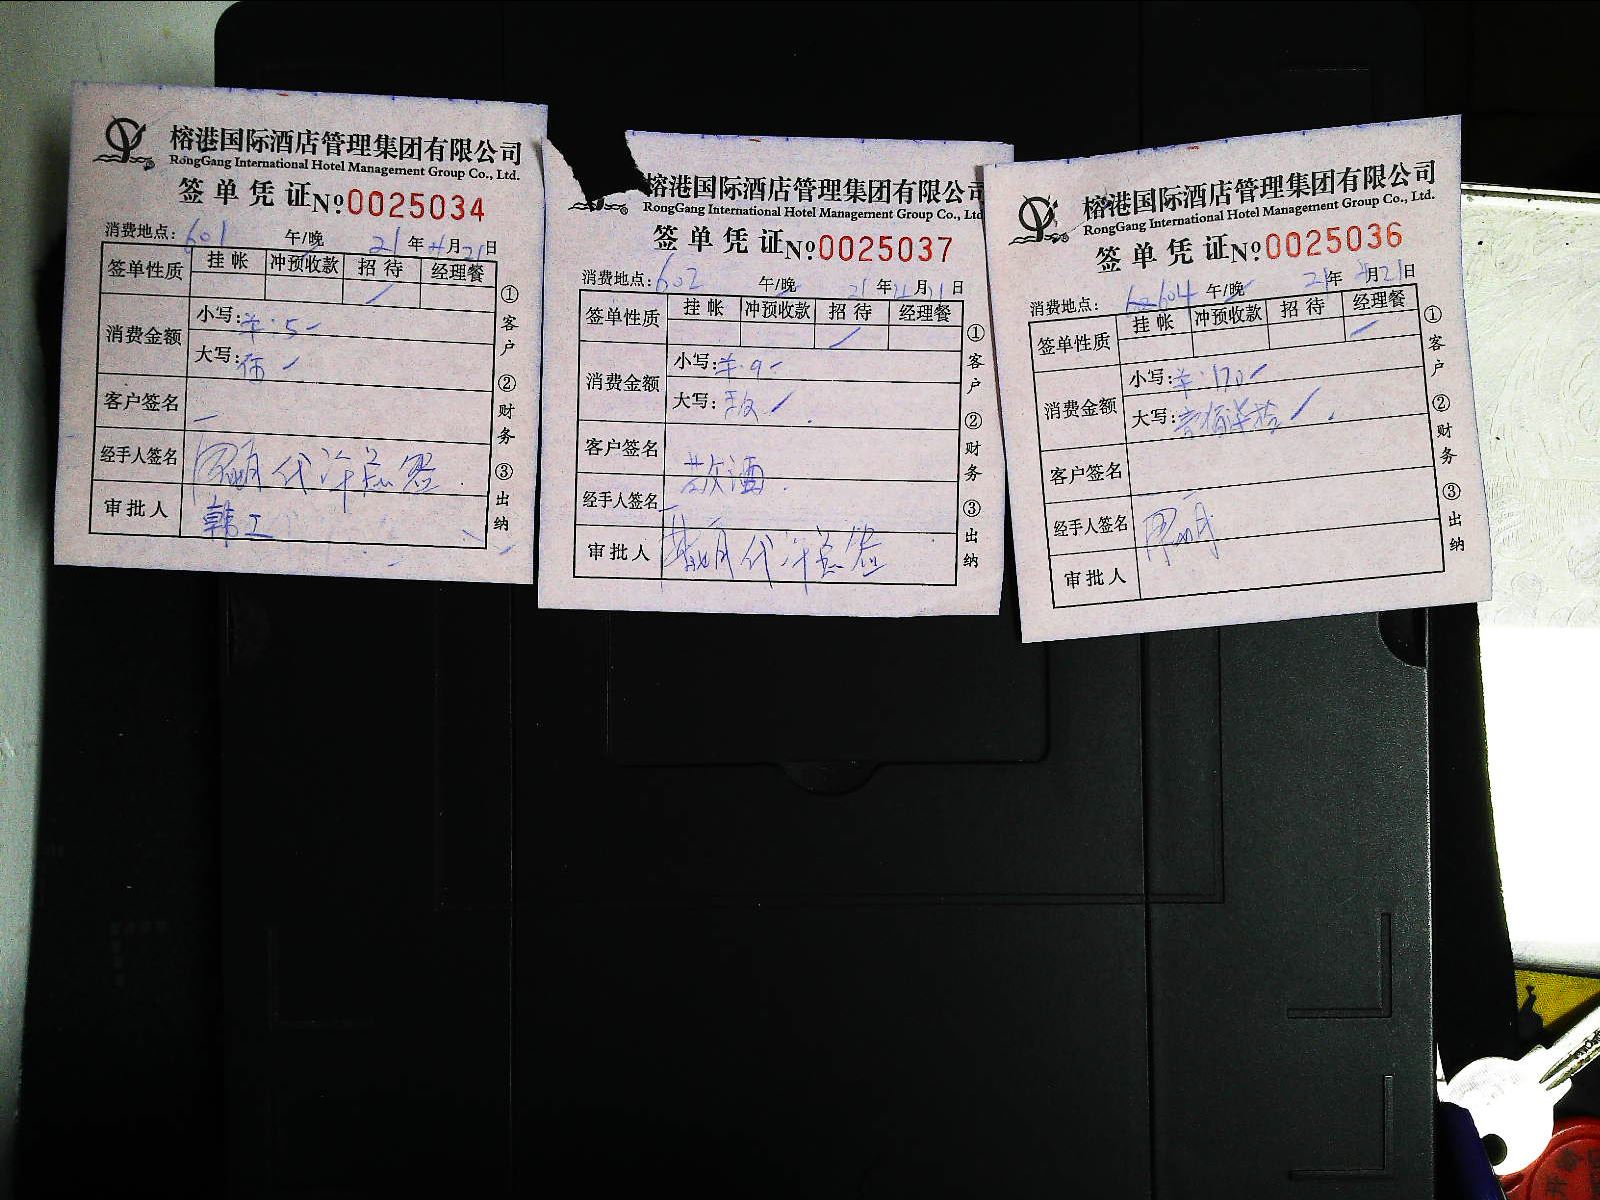 榕港国际酒店管理集团有限公司
RongGang International Hotel Management Group Co., Ltd.
签单凭证 №0025034
消费地点: 601 午/晚 21年4月21日
签单性质 挂帐 冲预收款 招待 经理餐
消费金额 小写: 5-
大写: 伍
客户签名
经手人签名 代 总签
审批人 韩工
①客户 ②财务 ③出纳
榕港国际酒店管理集团有限公司
RongGang International Hotel Management Group Co., Ltd.
签单凭证 №0025037
消费地点: 602 午/晚 21年4月21日
签单性质 挂帐 冲预收款 招待 经理餐
消费金额 小写: 9-
大写:
客户签名
经手人签名
审批人 代 总签
①客户 ②财务 ③出纳
榕港国际酒店管理集团有限公司
RongGang International Hotel Management Group Co., Ltd.
签单凭证 №0025036
消费地点: 604 午/晚 21年 月21日
签单性质 挂帐 冲预收款 招待 经理餐
消费金额 小写: 170-
大写: 壹佰柒拾
客户签名
经手人签名
审批人
①客户 ②财务 ③出纳